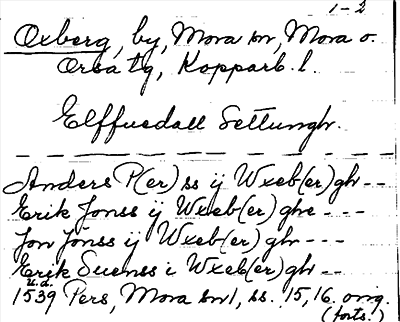 1-2
Oxberg, by, Mora sn, Mora o.
Orsa tg, Kopparb. l.
Elffuedall Settungh.
Anders P(er)ss ij Wxeb(er)gh --
Erik Jonss ij Wxeb(er)ghe ---
Jon Jönss ij Wxeb(er)gh ---
Erik Suenss i Wxeb(er)gh --
u.d.
1539 Pers, Mora sn 1, ss. 15, 16. orig.
(forts.)